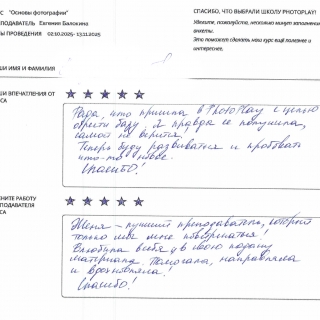 С "Основы фотографии"
СПАСИБО, ЧТО ВЫБРАЛИ ШКОЛУ PHOTOPLAY!
ПОДАВАТЕЛЬ Евгения Балокина
Ы ПРОВЕДЕНИЯ 02.10.2025- 13.11.2025
Уделите, пожалуйста, несколько минут заполнению
анкеты.
Это поможет сделать наш курс ещё полезнее и
интереснее.
ШИ ИМЯ И ФАМИЛИЯ
ШИ ВПЕЧАТЛЕНИЯ ОТ
СА
Рада, что пришла в PhotoPlay с целью
обрести базу. Я правда её получила,
самой не верится.
Теперь буду развиваться и пробовать
что-то новое.
Спасибо!
НИТЕ РАБОТУ
ПОДАВАТЕЛЯ
СА
Женя - лучший преподаватель, который
только мог мне повстречаться!
Влюбила в себя и в свою подачу
материала. Помогала, направляла
и вдохновляла!
Спасибо!